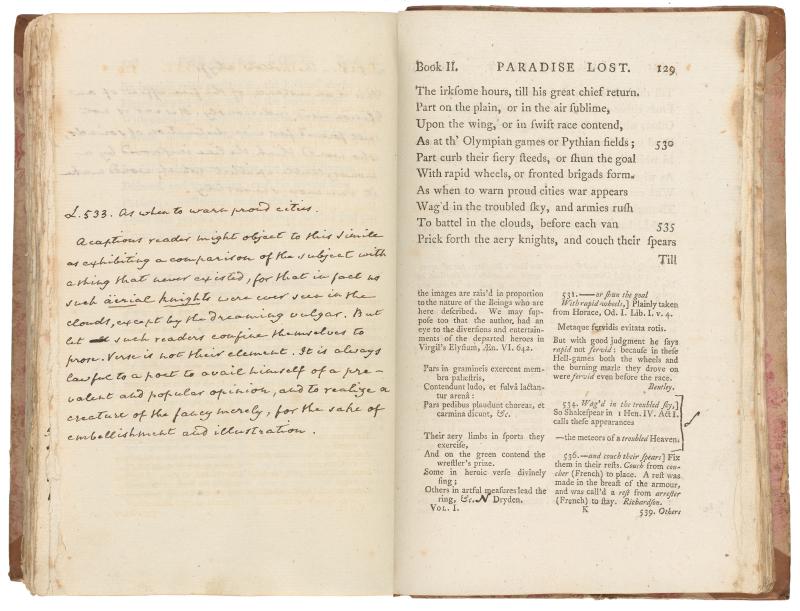 L.533. As when to warn proud cities.
A captious reader might object to this simile
as exhibiting a comparison of the subject with
a thing that never existed, for that in fact no
such äerial knights were ever seen in the
clouds, except by the dreaming vulgar. But
let such readers confine themselves to
prose. Verse is not their element. It is always
lawful to a poet to avail himself of a pre-
valent and popular opinion, and to realize a
creature of the fancy merely, for the sake of
embellishment and illustration.
Book II. PARADISE LOST. 129
The irkſome hours, till his great chief return.
Part on the plain, or in the air ſublime,
Upon the wing, or in ſwift race contend,
As at th' Olympian games or Pythian fields; 530
Part curb their fiery ſteeds, or ſhun the goal
With rapid wheels, or fronted brigads form.
As when to warn proud cities war appears
Wag'd in the troubled ſky, and armies ruſh
To battel in the clouds, before each van 535
Prick forth the aery knights, and couch their ſpears
Till
the images are rais'd in proportion
to the nature of the Beings who are
here deſcribed. We may ſup-
poſe too that the author, had an
eye to the diverſions and entertain-
ments of the departed heroes in
Virgil's Elyſium, Æn. VI. 642.
Pars in gramineis exercent mem-
bra palæſtris,
Contendunt ludo, et fulvâ luctan-
tur arenâ:
Pars pedibus plaudunt choreas, et
carmina dicunt, &c.
Their aery limbs in ſports they
exerciſe,
And on the green contend the
wreſtler's prize.
Some in heroic verſe divinely
ſing;
Others in artful meaſures lead the
ring, &c. Dryden.
VOL. I.
531.—or ſhun the goal
With rapid wheels,] Plainly taken
from Horace, Od. I. Lib. I. v. 4.
Metaque fervidis evitata rotis.
But with good judgment he ſays
rapid not fervid: becauſe in theſe
Hell-games both the wheels and
the burning marle they drove on
were fervid even before the race.
Bentley.
534. Wag'd in the troubled ſky,]
So Shakeſpear in 1 Hen. IV. Act I.
calls theſe appearances
—the meteors of a troubled Heaven.
536.—and couch their ſpears] Fix
them in their reſts. Couch from cou-
cher (French) to place. A reſt was
made in the breaſt of the armour,
and was call'd a reſt from arreſter
(French) to ſtay. Richardſon.
K 539. Others